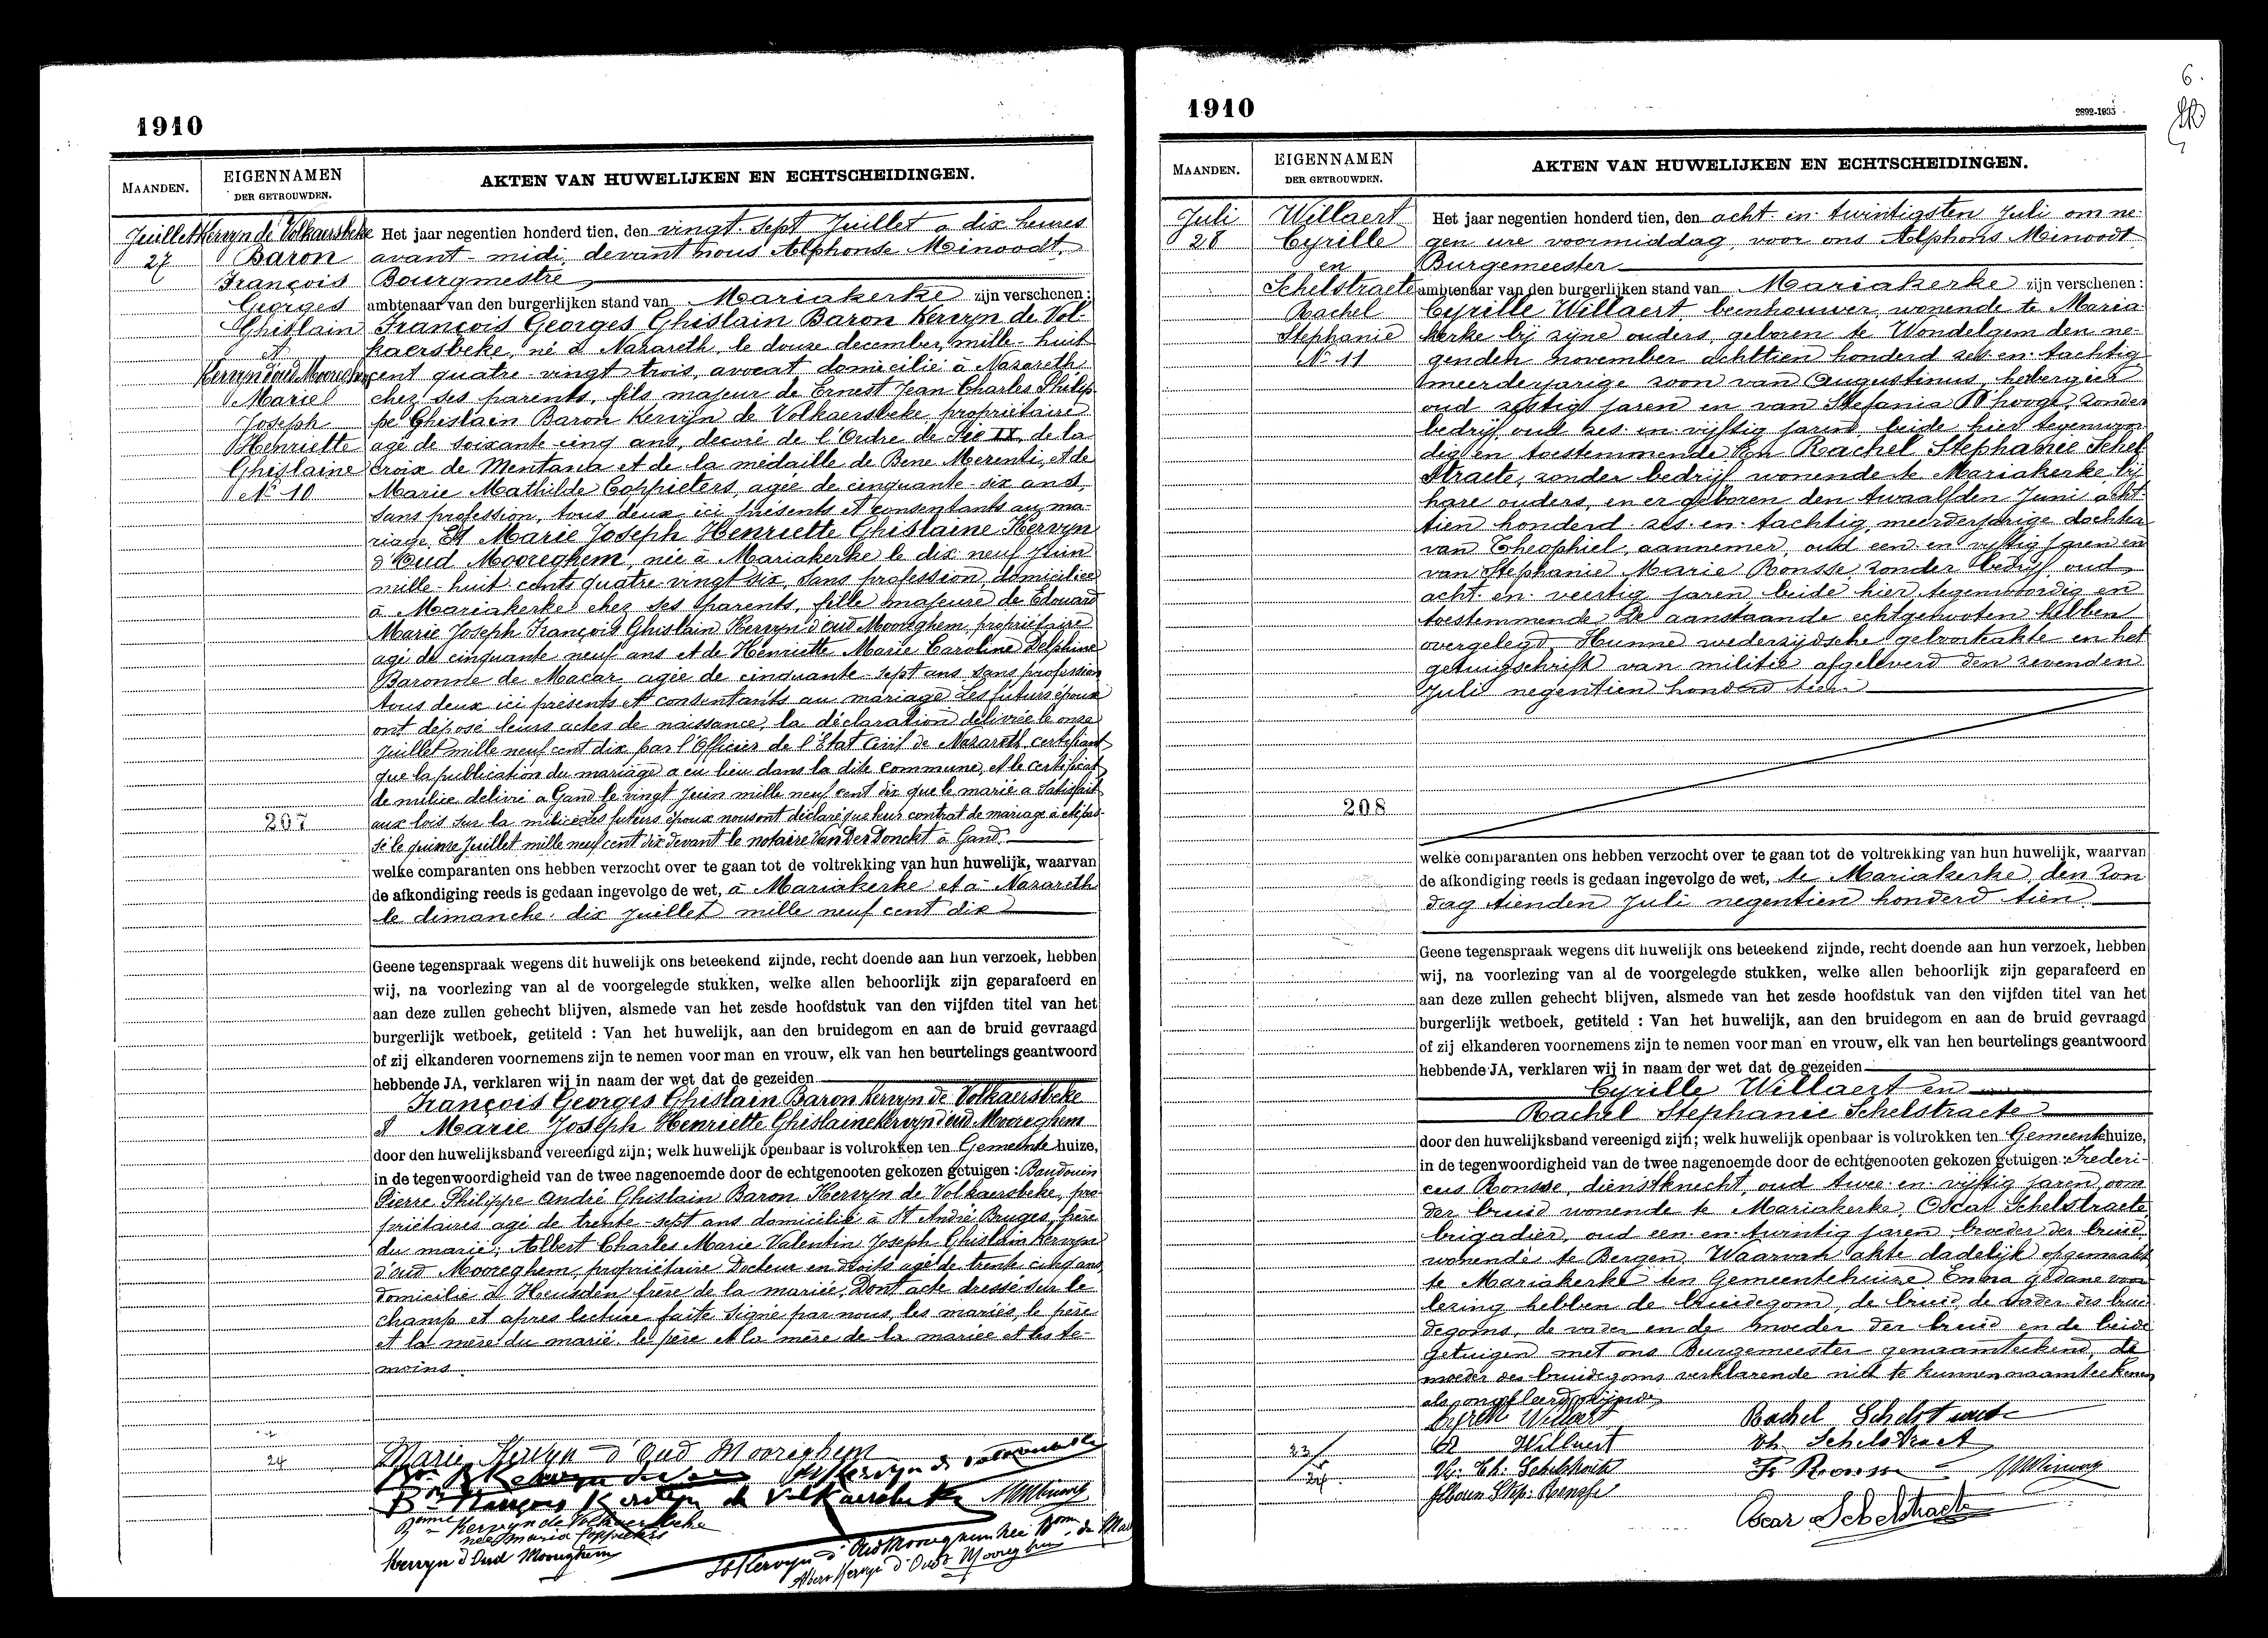 1910
MAANDEN.
EIGENNAMEN
DER GETROUWDEN.
AKTEN VAN HUWELIJKEN EN ECHTSCHEIDINGEN.
Juillet
27
Kervyn de Volkaersbeke
Baron
François
Georges
Ghislain
et
Kervyn d'oud Mooreghem
Marie
Joseph
Henriette
Ghislaine
N° 10
207
24
Het jaar negentien honderd tien, den vingt-sept Juillet a dix heures
avant-midi, devant nous Alphonse Minoodt,
Bourgmestre
ambtenaar van den burgerlijken stand van Mariakerke zijn verschenen:
François Georges Ghislain Baron Kervyn de Vol-
kaersbeke, né à Nazareth, le douze december, mille-huit
cent quatre-vingt trois, avocat domicilié à Nazareth
chez ses parents, fils majeur de Ernest Jean Charles Philip-
pe Ghislain Baron Kervyn de Volkaersbeke, propriétaire
agé de soixante cinq ans, decoré de l'Ordre de Pie IX, de la
Croix de Mentana et de la médaille de Bene Merenti, et de
Marie Mathilde Coppieters, agée de cinquante-six ans,
sans profession, tous deux ici présents et consentants au ma-
riage, Et Marie Joseph Henriette Ghislaine Kervyn
d'Oud Mooreghem, née à Mariakerke le dix-neuf Juin
mille-huit-cents quatre-vingt six, sans profession, domiciliée
à Mariakerke chez ses parents, fille majeure de Edouard
Marie Joseph François Ghislain Kervyn d'oud Mooreghem, propriétaire
agé de cinquante neuf ans et de Henriette Marie Caroline Delphine
Baronne de Macar agée de cinquante-sept ans sans profession
tous deux ici présents et consentants au mariage Les futurs époux
ont déposé leurs actes de naissance, la déclaration délivrée le onze
Juillet mille neuf cent dix par l'Officier de l'Etat Civil de Nazareth, certifiant
que la publication du mariage a eu lieu dans la dite commune, et le certificat
de milice délivré a Gand le vingt Juin mille neuf cent dix que le marié a satisfait
aux lois sur la milice Les futurs époux nous ont déclaré que leur contrat de mariage a été pas-
sé le quinze Juillet mille neuf cent dix devant le notaire Van Der Donckt à Gand.
welke comparanten ons hebben verzocht over te gaan tot de voltrekking van hun huwelijk, waarvan
de afkondiging reeds is gedaan ingevolge de wet, à Mariakerke et à Nazareth
le dimanche dix juillet mille neuf cent dix
Geene tegenspraak wegens dit huwelijk ons beteekend zijnde, recht doende aan hun verzoek, hebben
wij, na voorlezing van al de voorgelegde stukken, welke allen behoorlijk zijn geparafeerd en
aan deze zullen gehecht blijven, alsmede van het zesde hoofdstuk van den vijfden titel van het
burgerlijk wetboek, getiteld : Van het huwelijk, aan den bruidegom en aan de bruid gevraagd
of zij elkanderen voornemens zijn te nemen voor man en vrouw, elk van hen beurtelings geantwoord
hebbende JA, verklaren wij in naam der wet dat de gezeiden
François Georges Ghislain Baron Kervyn de Volkaersbeke
et Marie Joseph Henriette Ghislaine Kervyn d'oud Mooreghem
door den huwelijksband vereenigd zijn; welk huwelijk openbaar is voltrokken ten Gemeente huize,
in de tegenwoordigheid van de twee nagenoemde door de echtgenooten gekozen getuigen : Baudouin
Pierre Philippe André Ghislain Baron Kervyn de Volkaersbeke, pro-
priétaires agé de trente-sept ans domicilié à St André Bruges, frère
du marié; Albert Charles Marie Valentin Joseph Ghislain Kervyn
d'oud Mooreghem, propriétaire Docteur en droits agé de trente cinq ans,
domicilié à Heusden frère de la mariée, Dont acte dressé sur le
champ et apres lecture faite signé par nous, les mariés, le père
et la mère du marié, le père et la mère de la mariée et les te-
moins
Marie Kervyn d'Oud Mooreghem
Bon François Kervyn de Volkaersbeke
Bonne Kervyn de Volkaersbeke
née Maria Coppieters
Kervyn d'Oud Mooreghem
Kervyn d'Oud Mooreghem née Bonne de Mac
Albert Kervyn d'Oud Mooreghem
1910
2892-1935
6.
MAANDEN.
EIGENNAMEN
DER GETROUWDEN.
AKTEN VAN HUWELIJKEN EN ECHTSCHEIDINGEN.
Juli
28
Willaert
Cyrille
en
Schelstraete
Rachel
Stephanie
N° 11
208
23
24
Het jaar negentien honderd tien, den acht-en-twintigsten Juli om ne-
gen ure voormiddag, voor ons Alphons Minoodt
Burgemeester
ambtenaar van den burgerlijken stand van Mariakerke zijn verschenen :
Cyrille Willaert beenhouwer, wonende te Maria-
kerke bij zijne ouders, geloren te Wondelgem den ne-
genden november achttien honderd zes-en-tachtig
meerderjarige zoon van Augustinus, herbergier
oud zestig jaren en van Stefania D'hooge, zonder
bedrijf oud zes-en-vijftig jaren, beide hier tegenwoor-
dig en toestemmende En Rachel Stephanie Schel-
straete, zonder bedrijf wonende te Mariakerke, bij
hare ouders, en er geboren den twaalfden Juni acht-
tien honderd zes-en-tachtig, meerderjarige dochter
van Theophiel, aannemer, oud een-en vijftig jaren en
van Stephanie Marie Ronsse, zonder bedrijf oud
acht-en-veertig jaren beide hier tegenwoordig en
toestemmende De aanstaande echtgenooten hebben
overgelegd Hunne wederzijdsche geboorteakte en het
getuigschrift van militie afgeleverd den zevenden
Juli negentien honderd tien
welke comparanten ons hebben verzocht over te gaan tot de voltrekking van hun huwelijk, waarvan
de afkondiging reeds is gedaan ingevolge de wet, te Mariakerke, den Zon
dag tienden Juli negentien honderd tien
Geene tegenspraak wegens dit huwelijk ons beteekend zijnde, recht doende aan hun verzoek, hebben
wij, na voorlezing van al de voorgelegde stukken, welke allen behoorlijk zijn geparafeerd en
aan deze zullen gehecht blijven, alsmede van het zesde hoofdstuk van den vijfden titel van het
burgerlijk wetboek, getiteld : Van het huwelijk, aan den bruidegom en aan de bruid gevraagd
of zij elkanderen voornemens zijn te nemen voor man en vrouw, elk van hen beurtelings geantwoord
hebbende JA, verklaren wij in naam der wet dat de gezeiden
Cyrille Willaert en
Rachel Stephanie Schelstraete
door den huwelijksband vereenigd zijn; welk huwelijk openbaar is voltrokken ten Gemeentehuize,
in de tegenwoordigheid van de twee nagenoemde door de echtgenooten gekozen getuigen : Frederi-
cus Ronsse, dienstknecht, oud twee-en-vijftig jaren, oom
der bruid wonende te Mariakerke, Oscar Schelstraete,
brigadier, oud een-en-twintig jaren, broeder der bruid,
wonende te Bergen, Waarvan akte dadelijk opgemaakt
te Mariakerke ten Gemeentehuize. En na gedane voor
lezing hebben de bruidegom, de bruid, de vader des brui
degoms, de vader en de moeder der bruid en de beide
getuigen met ons Burgemeester genaamteekend, de
moeder des bruidegoms verklarende niet te kunnen naamteekenen
als ongeleerd zijnde
Cyrille Willaert
Rachel Schelstraete
Willaert
Th. Schelstraet
Schelstraete
Fr Ronsse
Step: Ronsse
Oscar Schelstraete